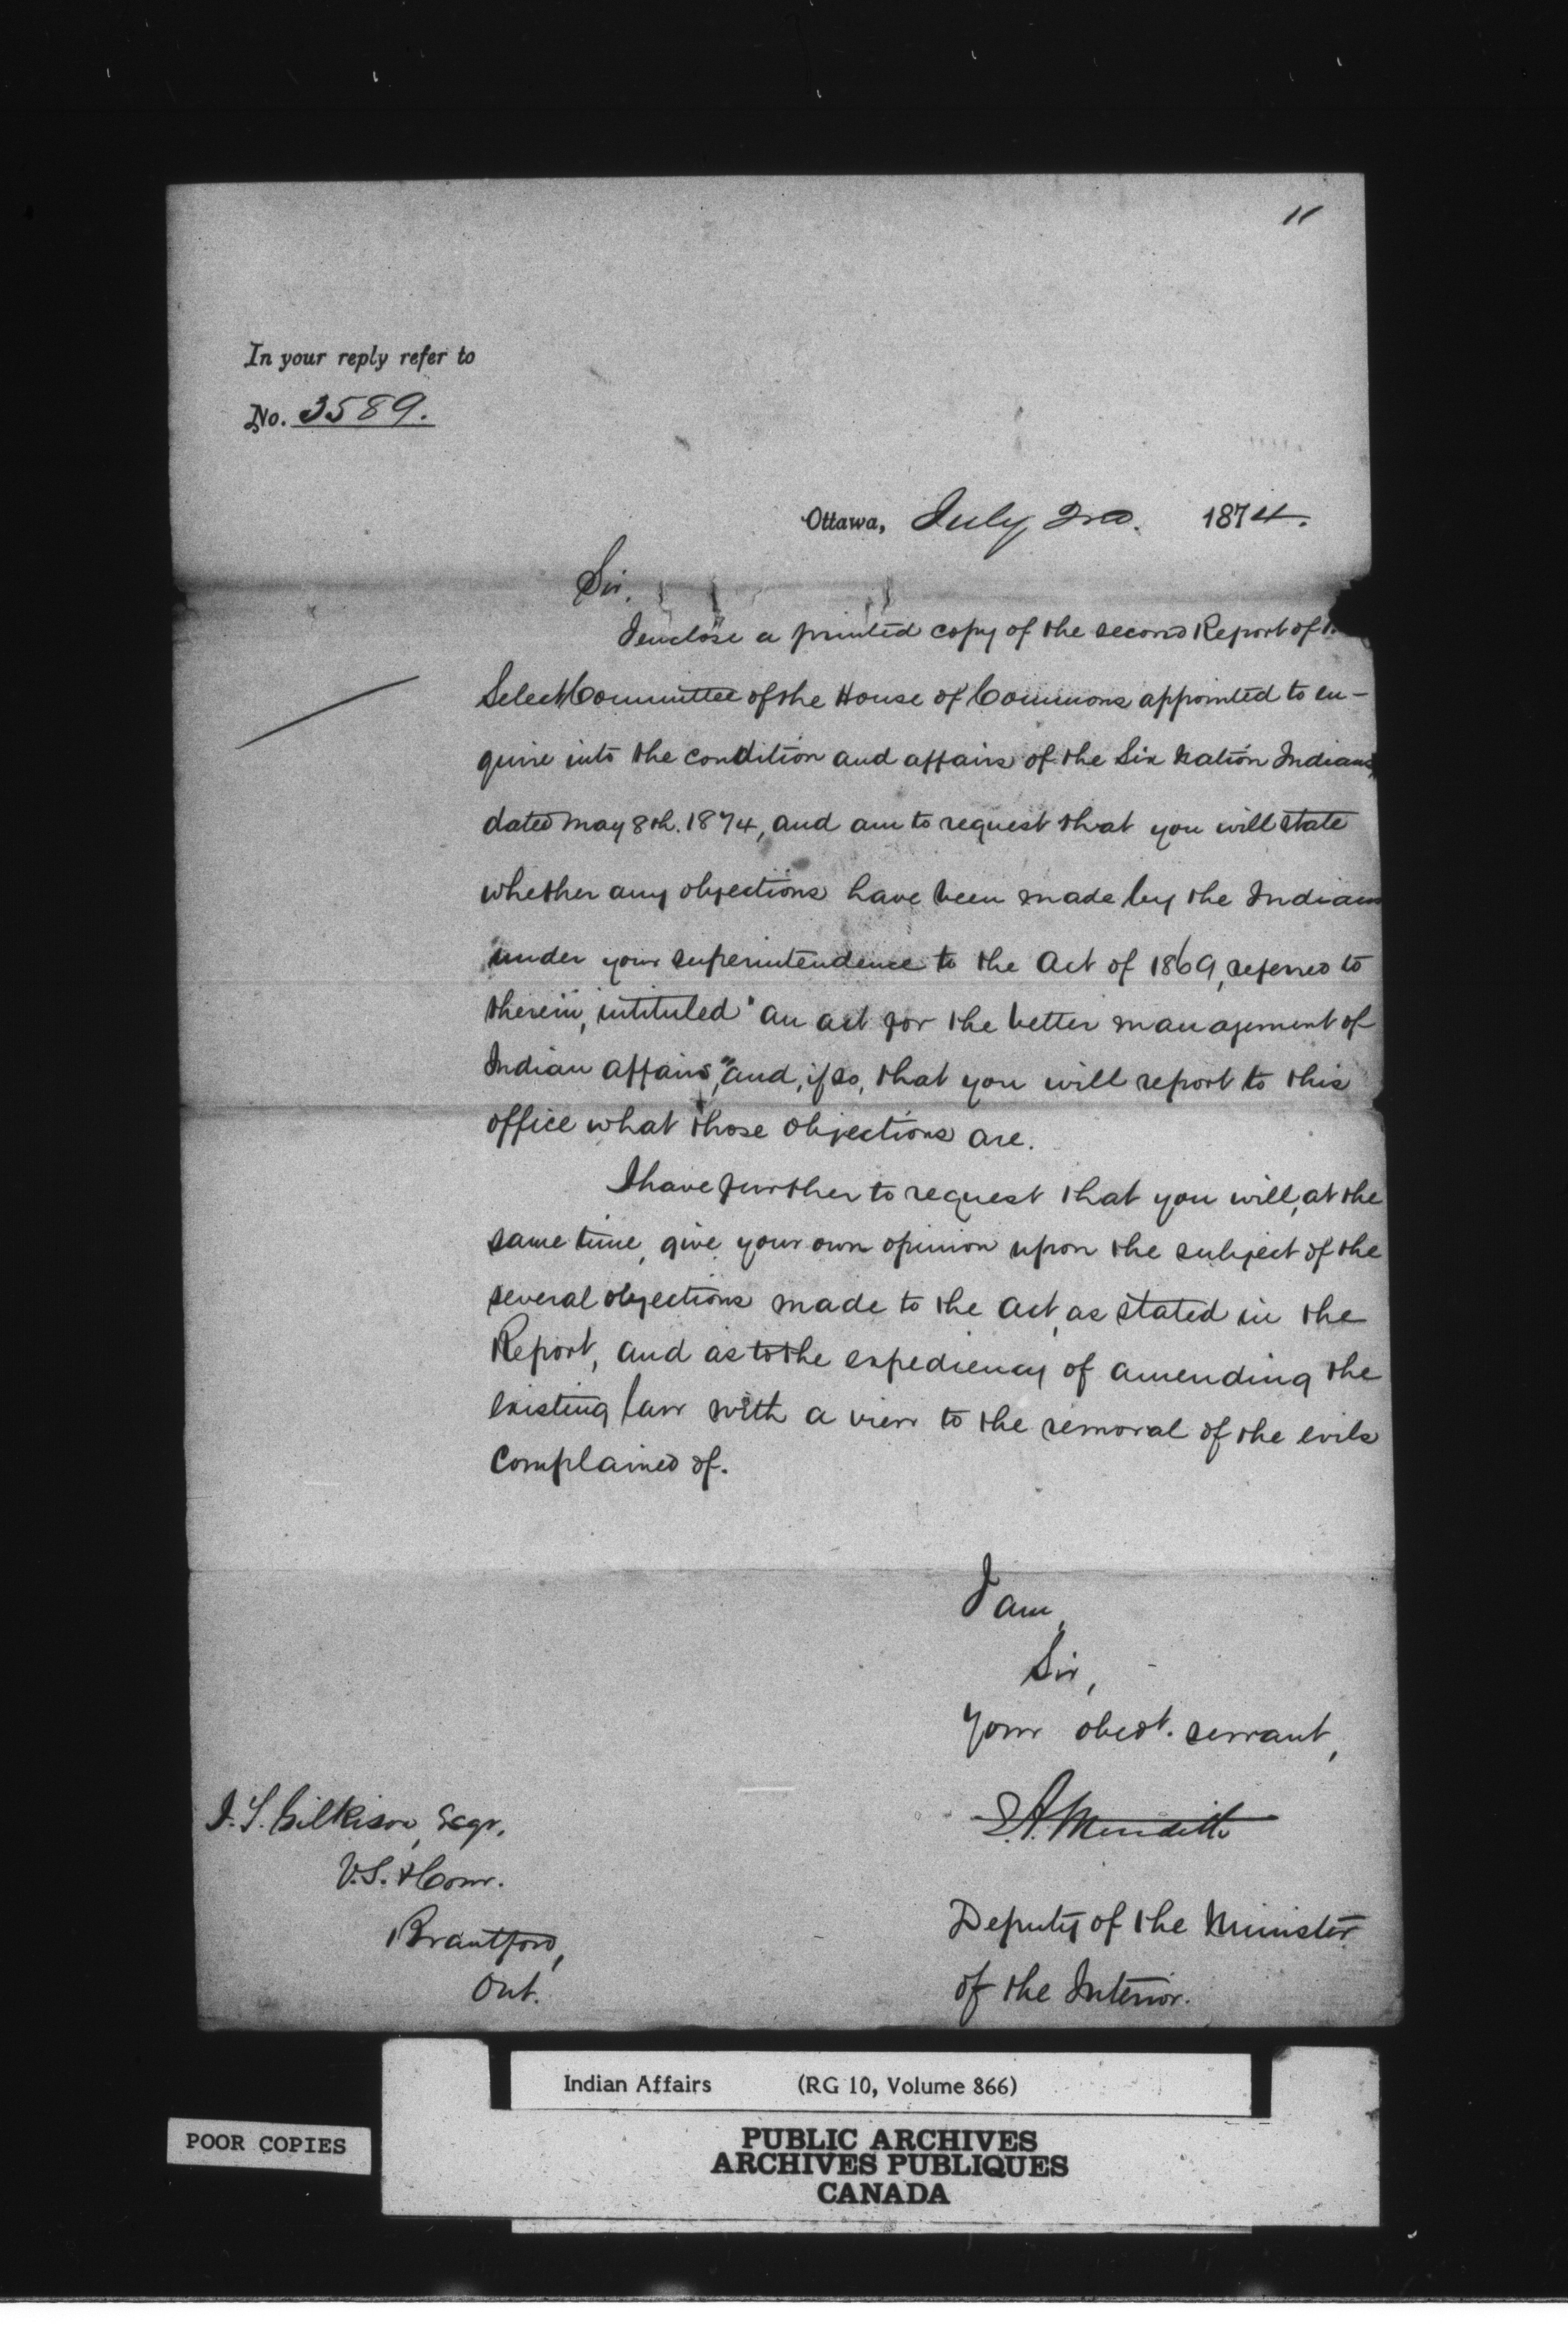 11
In your reply refer to
No. 3589.
Ottawa, July 2nd. 1874.
Sir,
I enclose a printed copy of the second Report of
Select Committee of the House of Commons appointed to en-
quire into the condition and affairs of the Six Nation Indians,
dated May 8th. 1874, and am to request that you will state
whether any objections have been made by the Indians
under your superintendence to the Act of 1869, referred to
therein, intituled "An act for the better management of
Indian affairs", and, if so, that you will report to this
office what those objections are.
I have further to request that you will, at the
same time, give your own opinion upon the subject of the
several objections made to the Act, as stated in the
Report, and as to the expediency of amending the
existing law with a view to the removal of the evils
complained of.
I am,
Sir,
Your obedt. servant,
E.A. Meredith
Deputy of the Minister
of the Interior.
J.T. Gilkison, Esqr.
V.S. & Comr.
Brantford,
Ont.
Indian Affairs (RG 10, Volume 866)
POOR COPIES
PUBLIC ARCHIVES
ARCHIVES PUBLIQUES
CANADA